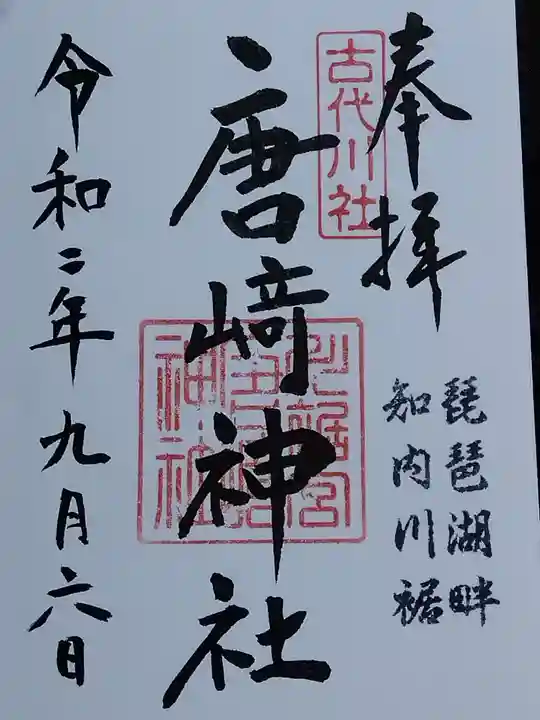 奉拝
古代川社
琵琶湖畔
知内川裾
唐﨑神社
令和二年九月六日